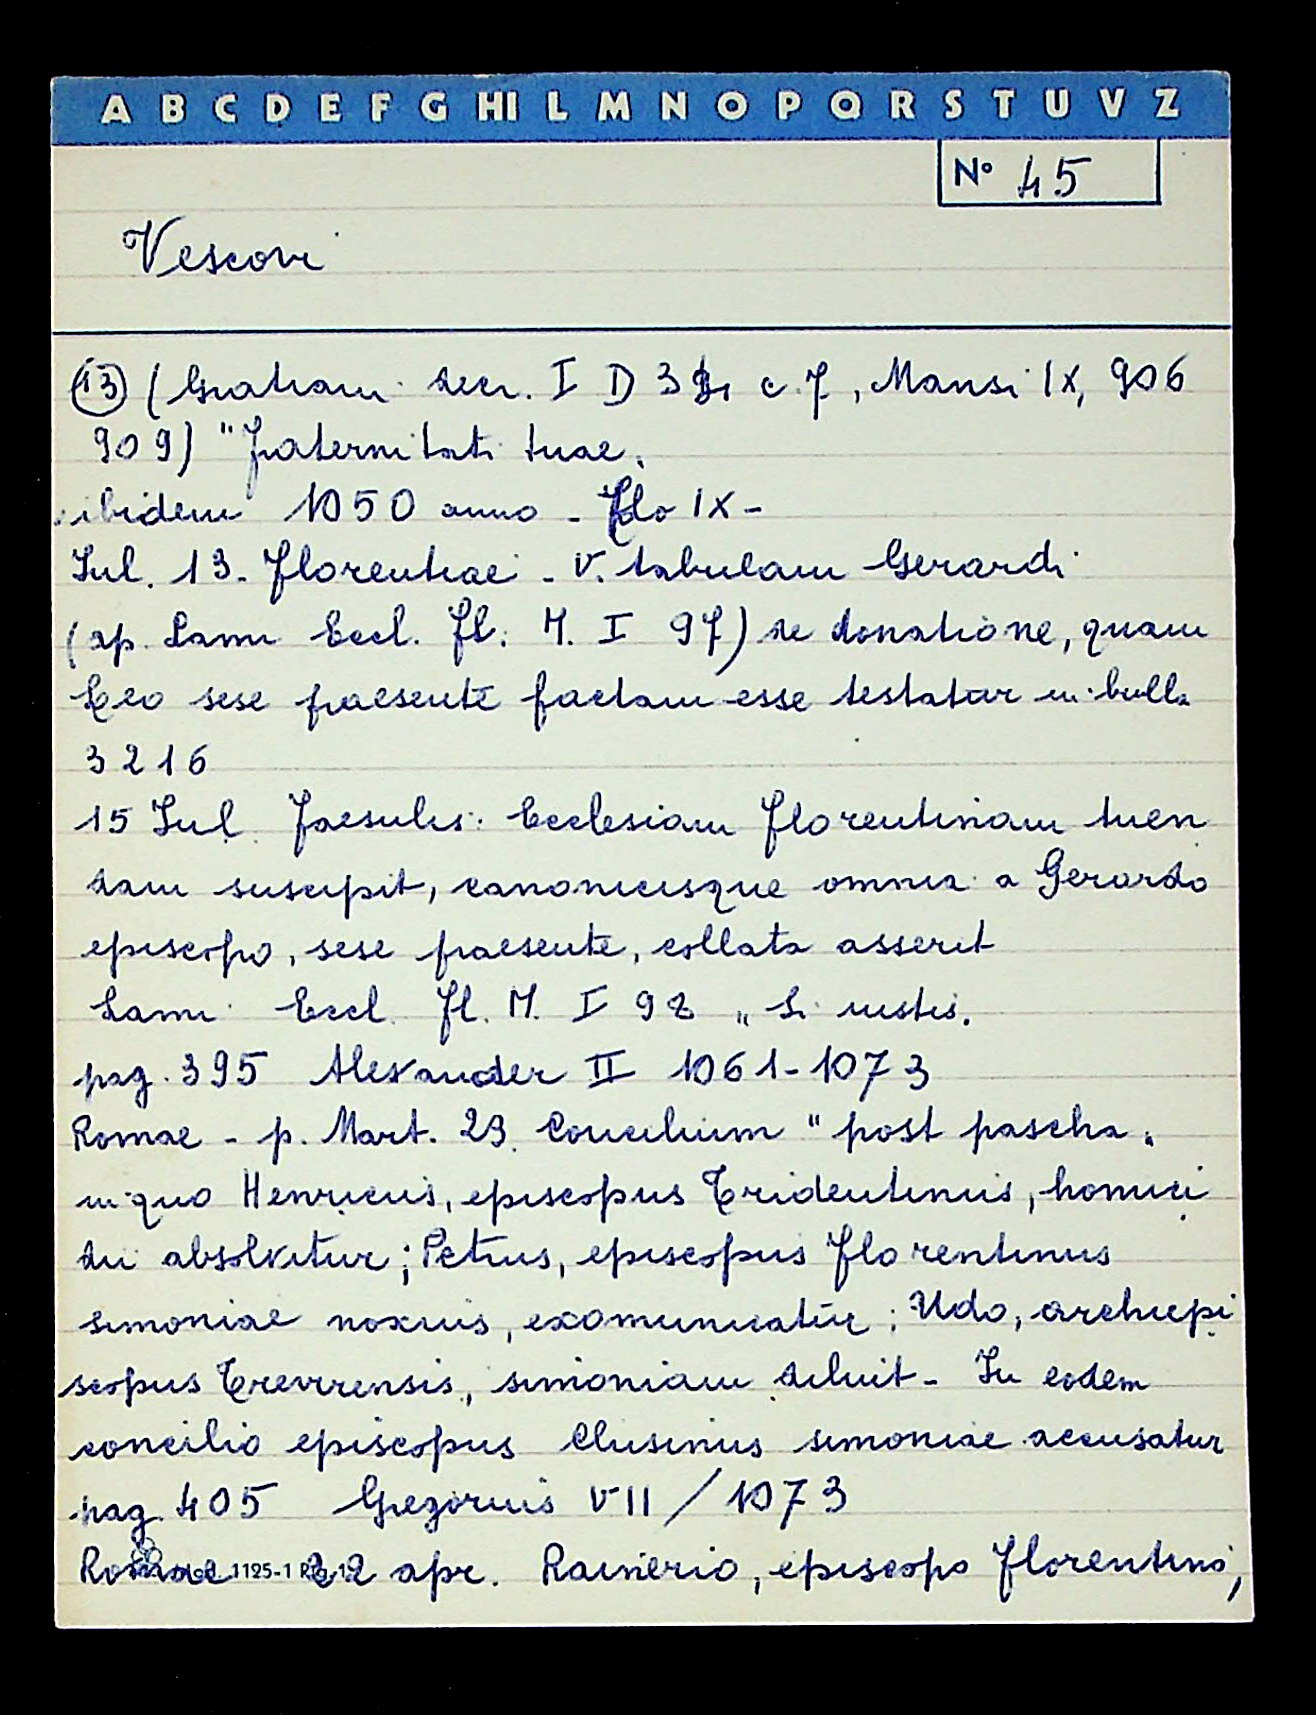 A B C D E F G HI L M N O P Q R S T U V Z
N° 45
Vescovi
(13) (Gratiani decr. I D 34 c. 7, Mansi IX, 906
909) "Fraternitati tuae„
ibidem 1050 anno - Leo IX -
Iul. 13. Florentiae - V. tabulam Gerardi
(ap. Lami Eccl. Fl. M. I 97) de donatione, quam
Leo sese praesente factam esse testatur in bulla
3216
15 Iul. Faesulis: Ecclesiam Florentinam tuen
dam suscipit, canonicisque omnia a Gerardo
episcopo, sese praesente, collata asserit
Lami Eccl. Fl. M. I 98 „ Si iustis„
pag. 395 Alexander II 1061-1073
Romae - p. Mart. 23. Concilium "post pascha„
in quo Henricus, episcopus Tridentinus, homici
dii absolvitur; Petrus, episcopus Florentinus
simoniae noxius, exomunicatur; Udo, archiepi
scopus Trevirensis, simoniam diluit - In eodem
concilio episcopus Clusinus simoniae accusatur
pag. 405 Gregorius VII / 1073
Romae 22 apr. Rainerio, episcopo Florentino,
1125-1